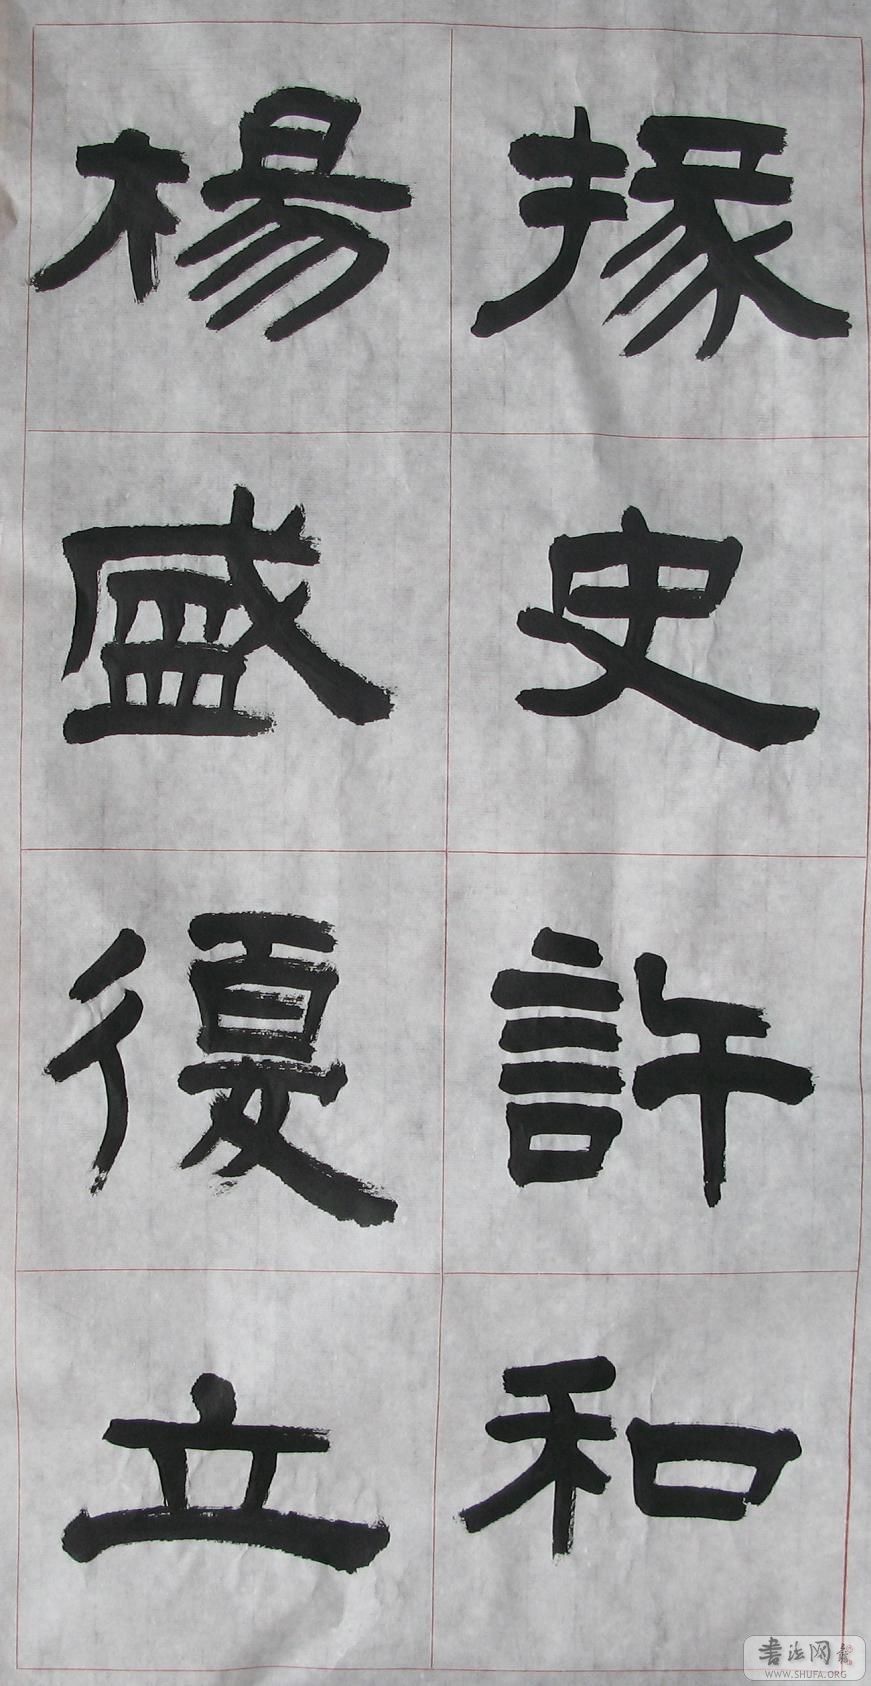 掾史許和
楊盛復立
书法网
WWW.SHUFA.ORG